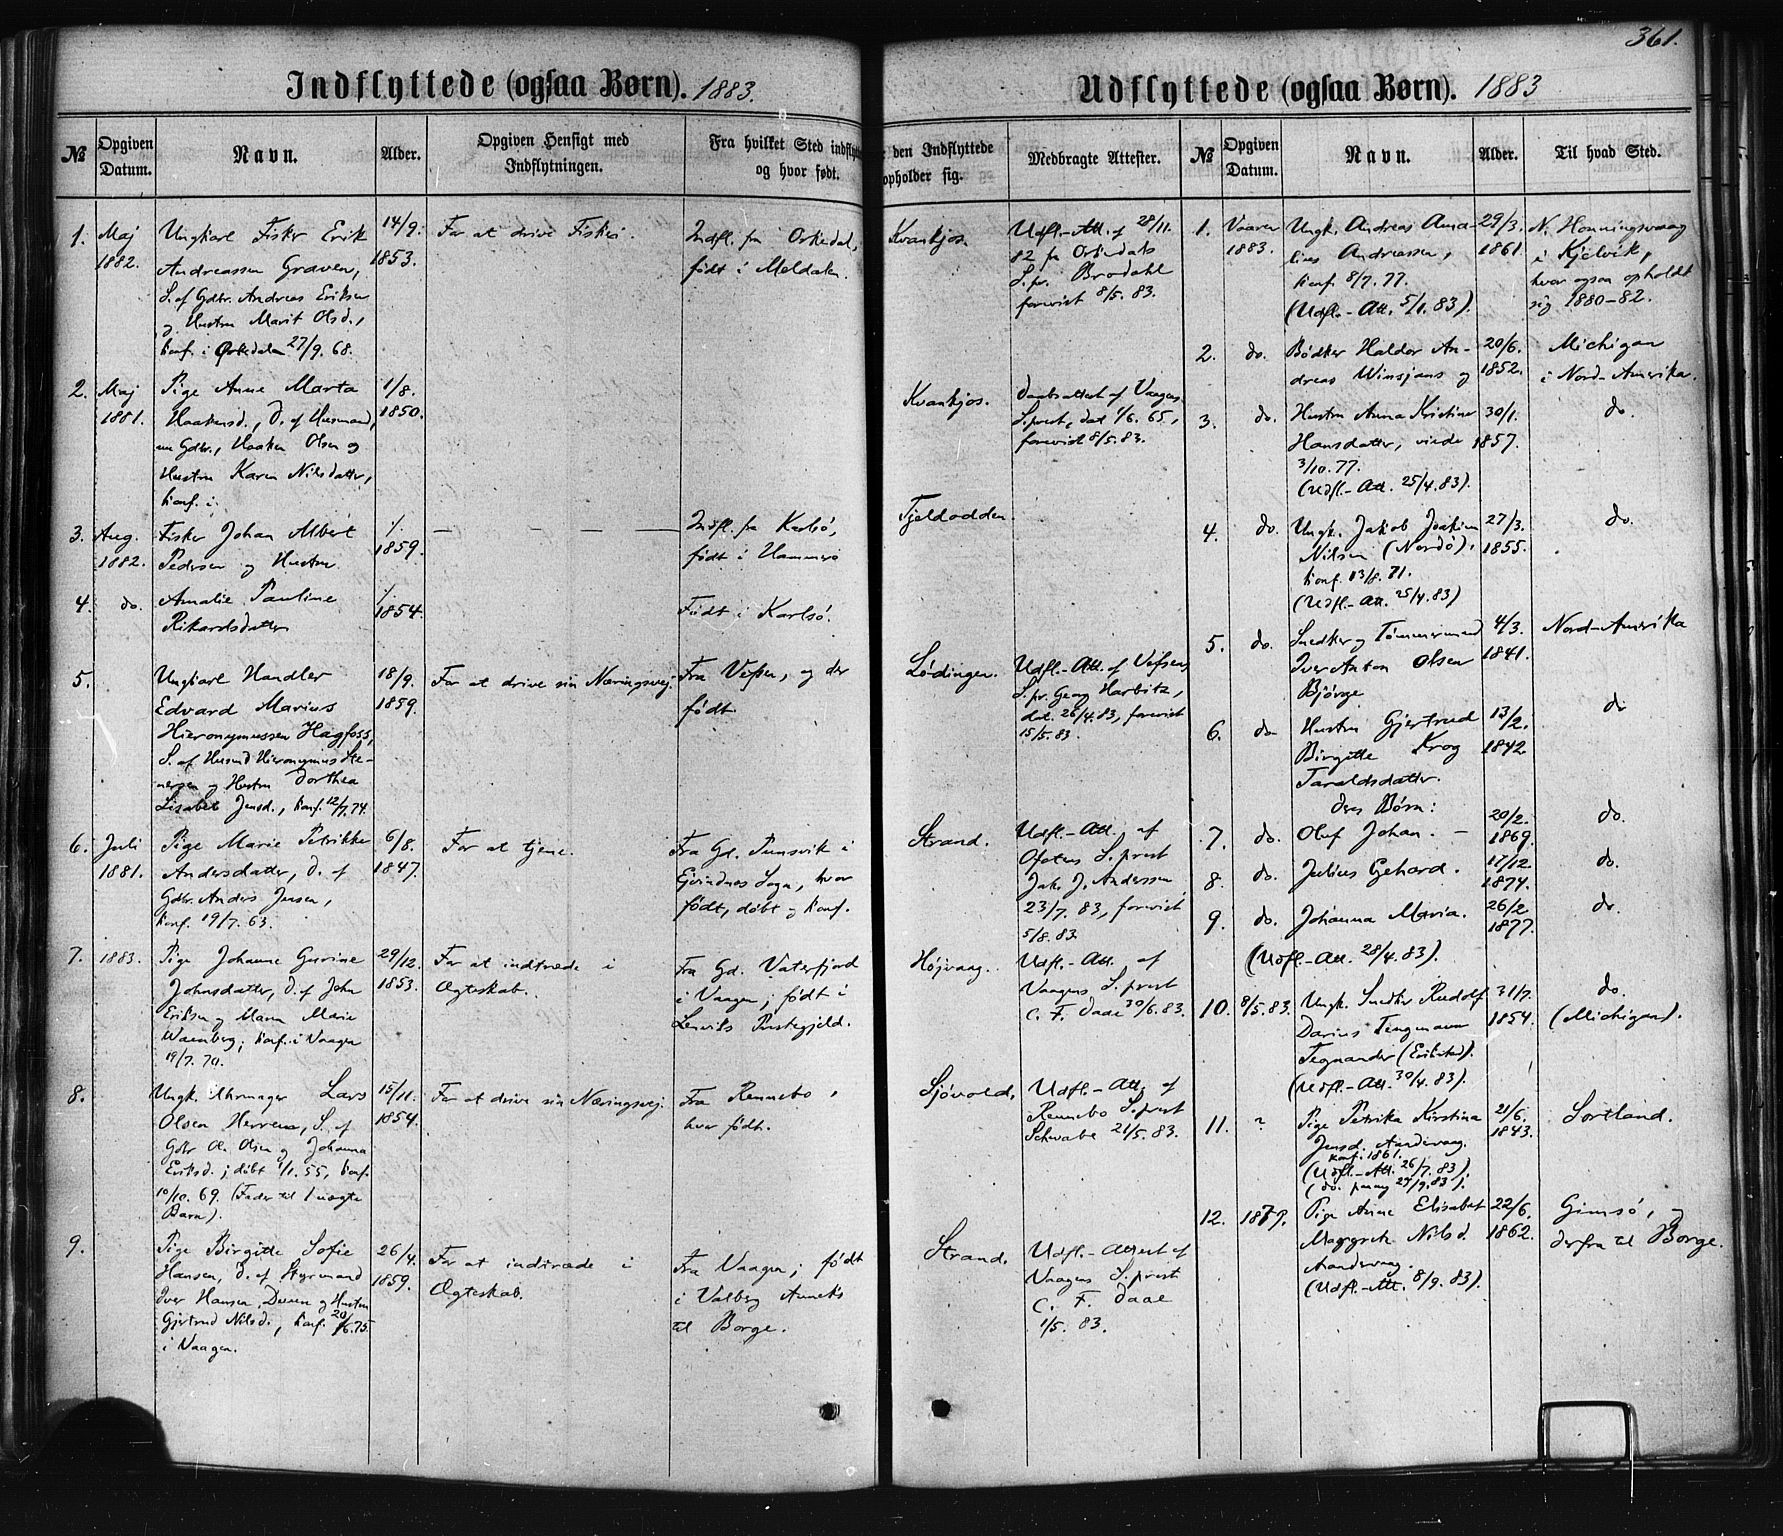 361.
Indflyttede (ogsaa Børn). 1883.
№
Opgiven Datum.
Navn.
Alder.
Opgiven Hensigt med Indflytningen.
Fra hvilket Sted indflytt
og hvor født.
den Indflyttede
opholder sig.
Medbragte Attester.
1.
Maj
1882.
Ungkarl Fisker Erik
Andreassen Graven,
S. af Gdbr. Andreas Eriksen
og Hustru Marit Olsd.,
konf. i Orkedalen 27/9. 68.
14/9.
1853.
For at drive Fiskeri.
Indfl. fra Orkedal,
født i Meldalen.
Kvankjos.
Udfl.-Att. af 28/11.
82 fra Orkedals
S.pr. Brodahl
forevist 8/5. 83.
2.
Maj
1881.
Pige Anne Marta
Haakensd., D. af Husmand,
nu Gdbr., Haaken Olsen og
Hustru Karen Nilsdatter,
konf. i
1/8.
1850.
Kvankjos.
Daabsattest af Vaagens
S.prest, dat. 1/6. 65,
forevist 8/5. 83.
3.
Aug.
1882.
Fisker Johan Albert
Pedersen og Hustru
/.
1859.
— — — —
Indfl. fra Karlsö,
født i Hammerö
Fjeldodden.
4.
do.
Amalie Pauline
Rikardsdatter
/.
1854.
Født i Karlsö.
5.
Ungkarl Handler
Edvard Marius
Hieronymussen Hagfoss,
S. af Husmd Hieronymus Ste-
nersen og Hustru Dorthea
Lisabet Jensd., konf. 12/7. 74.
18/9.
1859.
For at drive sin Næringsvej.
Fra Vefsen, og der
født.
Lødingen.
Udfl.-Att. af Vefsens
S.pr. Georg Harbitz,
dat. 26/4. 83, forevist
15/5. 83.
6.
Juli
1881.
Pige Marie Petrikke
Andersdatter, D. af
Gdbr. Anders Jensen,
konf. 19/7. 63.
6/8.
1847.
For at tjene.
Fra Gd. Punsvik i
Ejvindnes Sogn, hvor
født, døbt og konf.
Strand.
Udfl.-Att. af
Ofotens S.prest
Jak. J. Anderssen
23/7. 83, forevist
5/8. 83.
7.
1883.
Pige Johanne Gurine
Johnsdatter, D. af John
Eriksen og Maren Marie
Warnberg; konf. i Vaagen
19/7. 70.
29/12.
1853.
For at indtræde i
Ægteskab.
Fra Gd. Vaterfjord
i Vaagen; født i
Lenviks Prestegjeld.
Højvaag.
Udfl.-Att. af
Vaagens S.prest
C. F. Daae 30/6. 83.
8.
Ungk. Uhrmager Lars
Olsen Herrem, S. af
Gdbr Ol. Olsen og Johanna
Eriksd.; døbt 1/1. 55, konf.
10/10. 69. (Fader til 1 uægte
Barn).
15/11.
1854.
For at drive sin Næringsvej.
Fra Rennebo,
hvor født.
Sjövold.
Udfl.-Att. af
Rennebo S.prest
Schwabe 21/5. 83.
9.
Pige Birgitte Sofie
Hansen, D. af Styrmand
Iver Hansen Dreven og Hustru
Gjertrud Nilsd., konf. 20/6. 75.
i Vaagen.
26/4.
1859.
For at indtræde i
Ægteskab.
Fra Vaagen; født
i Valberg Anneks
til Borge.
Strand.
Udfl.-Attest af
Vaagens S.prest
C. F. Daae
1/5. 83.
Udflyttede (ogsaa Børn). 1883
№
Opgiven Datum.
Navn.
Alder.
Til hvad Sted.
1.
Vaaren
1883.
Ungk. Andreas Ama-
lius Andreassen,
konf. 8/7. 77.
(Udfl.-Att. 5/1. 83).
29/3.
1861.
N. Honningsvaag
i Kjelvik,
hvor ogsaa opholdt
sig 1880-82.
2.
do.
Bødker Haldor An-
dreas Winsjans og
20/6.
1852.
Michigan
i Nord-Amerika.
3.
do.
Hustru Anna Kristine
Hansdatter, viede
3/10. 77.
(Udfl.-Att. 25/4. 83).
30/1.
1857.
do.
4.
do.
Ungk. Jakob Joakim
Nilsen (Nordö),
konf. 13/8. 71.
(Udfl.-Att. 25/4. 83)
27/3.
1855.
do.
5.
do.
Snedker og Tömmermand
Iver Anton Olsen
Bjørge
4/3.
1841.
Nord-Amerika
6.
do
Hustru Gjertrud
Birgitte Krog
Taraldsdatter.
13/2.
1842.
do
deres Børn:
7.
do.
Oluf Johan. —
20/2.
1869.
do.
8.
do.
Julius Gehard.
17/12
1874.
do.
9.
do.
Johanna Maria.
26/2
1877.
do.
(Udfl.-Att. 28/4. 83).
10.
8/5. 83.
Ungk. Snedker Rudolf
Darius Tengmann
Tegnander (Erikstad).
(Udfl.-Att. 30/4. 83).
31/7.
1854.
do.
(Michigan).
11.
?
Pige Petrika Kirstina
Jensd. Aandervaag.
konf. 1861.
(Udfl.-Att. 26/7. 83).
(do. paany 29/9. 83);
21/6.
1843.
Sortland.
12.
1879.
Pige Anne Elisabet
Margrete Nilsd.
Aandervaag.
(Udfl.-Att. 8/9. 83).
22/6.
1862.
Gimsö, og
derfra til Borge.